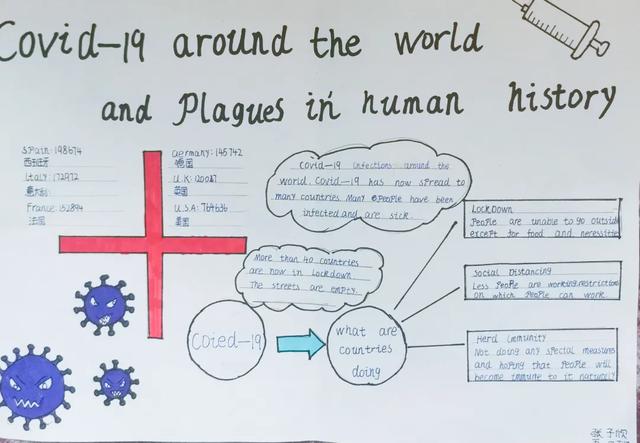 Covid-19 around the world
and Plagues in human history
Spain:198674
西班牙
Italy:172972
意大利
France:152894
法国
Germany:145742
德国
U.K:
英国
U.S.A:764636
美国
Covid-19 infections around the
world. Covid-19 has now spread to
many countries. Many people have been
infected and are sick.
More than 40 countries
are now in lockdown
The streets are empty.
Coied-19
what are
countries
doing
Lockdown
People are unable to go outside
except for food and necessities
Social Distancing
Less people are working.restrictions
on which people can work.
Herd immunity
Not doing any special measures
and hoping that people will
become immune to it naturally
张子欣